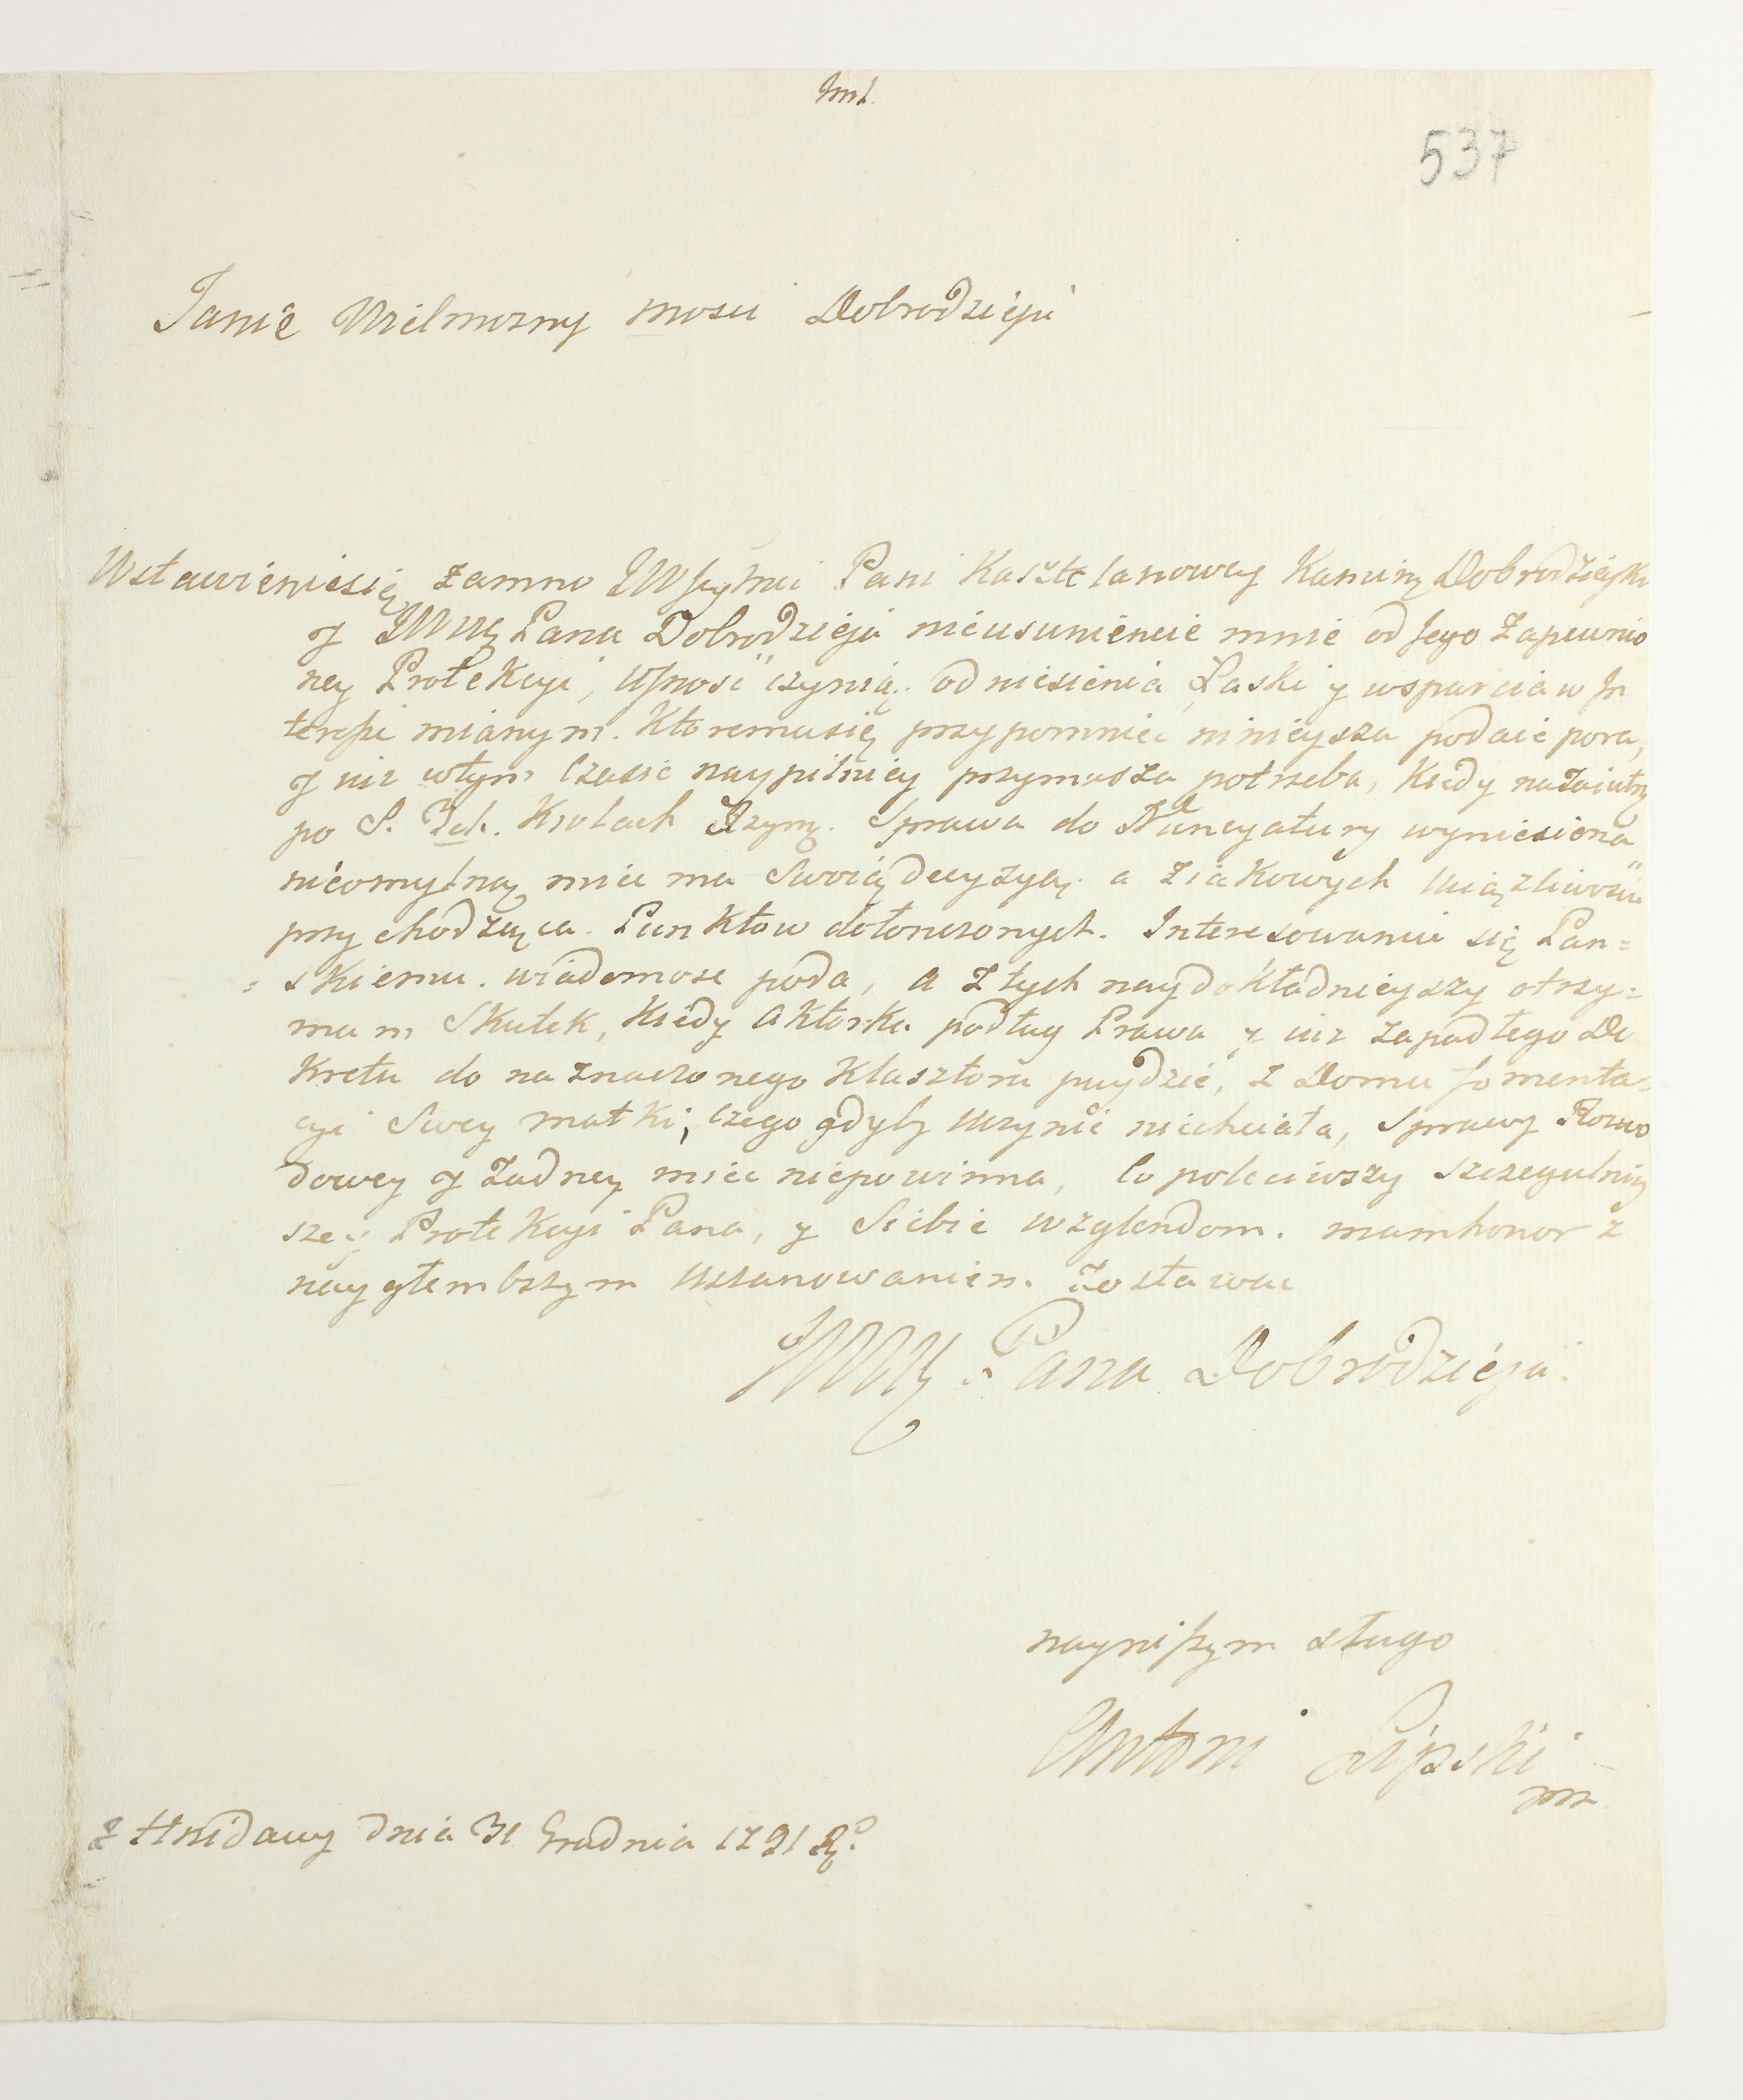 537
Janie Wielmozny mosci Dobrodzieju
Wstawieniesię zamno Pani Kasztelanowey Kamins Dobrodzieyki
y JWWg Pana Dobrodzieja nieusuniencie mnie od Jego Zapewnio
ney Protekcyi, ufność czynią. odniesienia Łaski y wsparcia w In
teresie mianym. Ktoremusię przypomniec ninieysza podaie pora,
y iuz wtym Czasie naypilniey przymusza potrzeba, Kiedy nazaiutrz
po S. Krolach Sprawa do Nuncyatury wyniesiona
nieomylną miec ma Swoią decyzyą. a ziakowych uciązliwości
przychodząca. Punktow dołonczonych. Interesowaniu się Pan=
=skiemu. wiadomosc poda, a Ztych naydokładnieyszy otrzy=
mam Skutek, Kiedy aktorka podług Prawa y iuz zapadłego De
kretu do naznaczonego Klasztoru puydzie, z Domu fomenta=
cyi Swey matki, czego gdyby uczynić niechciała, Sprawy Rozwo
dowey y Zadney miec niepowinna, Co poleciwszy szczegulniey
szey Protekcyi Pana, y Siebie wzglendom. mamhonor z
nayglembszym uszanowaniem Zostawac
JWWg Pana Dobrodzieja.
nayniszym sługo
Antoni Lipski
mp
z Hnidawy dnia 31 Grudnia 1791 Ro.